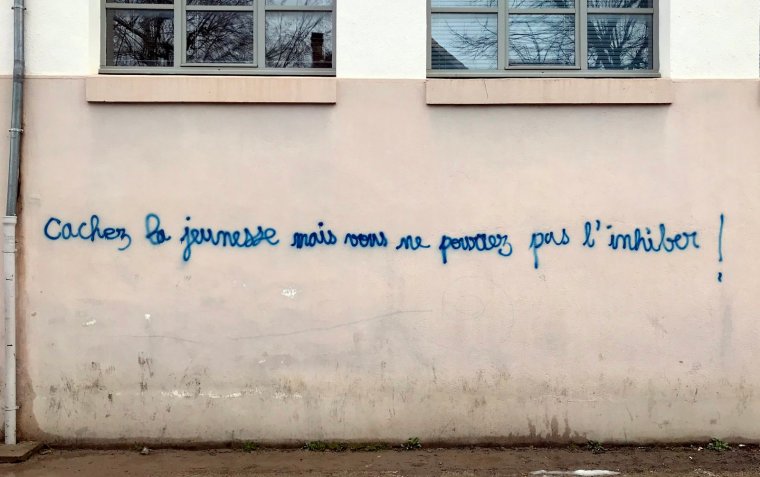 Cachez la jeunesse mais vous ne pourrez pas l'inhiber !